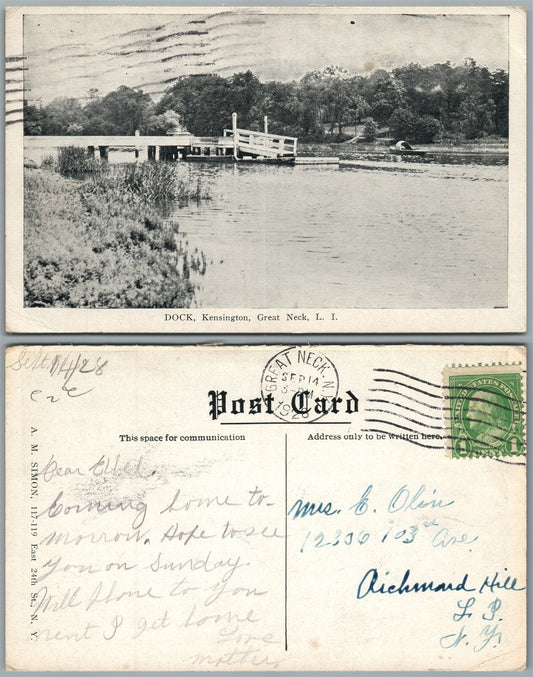 DOCK, Kensington, Great Neck, L. I.
Sept 14/28
eve
GREAT NECK, N.Y.
SEP 14
3 PM
1928
Post Card
This space for communication
Address only to be written here.
UNITED STATES POSTAGE
1 1
A. M. SIMON, 117-119 East 24th St., N. Y.
Dear
Coming home to-
morrow. Hope to see
you on Sunday.
Will Phone to you
I get home
Love
mother
Mrs. E. Olin
12336 103rd Ave.
Richmond Hill
L. I.
N. Y.